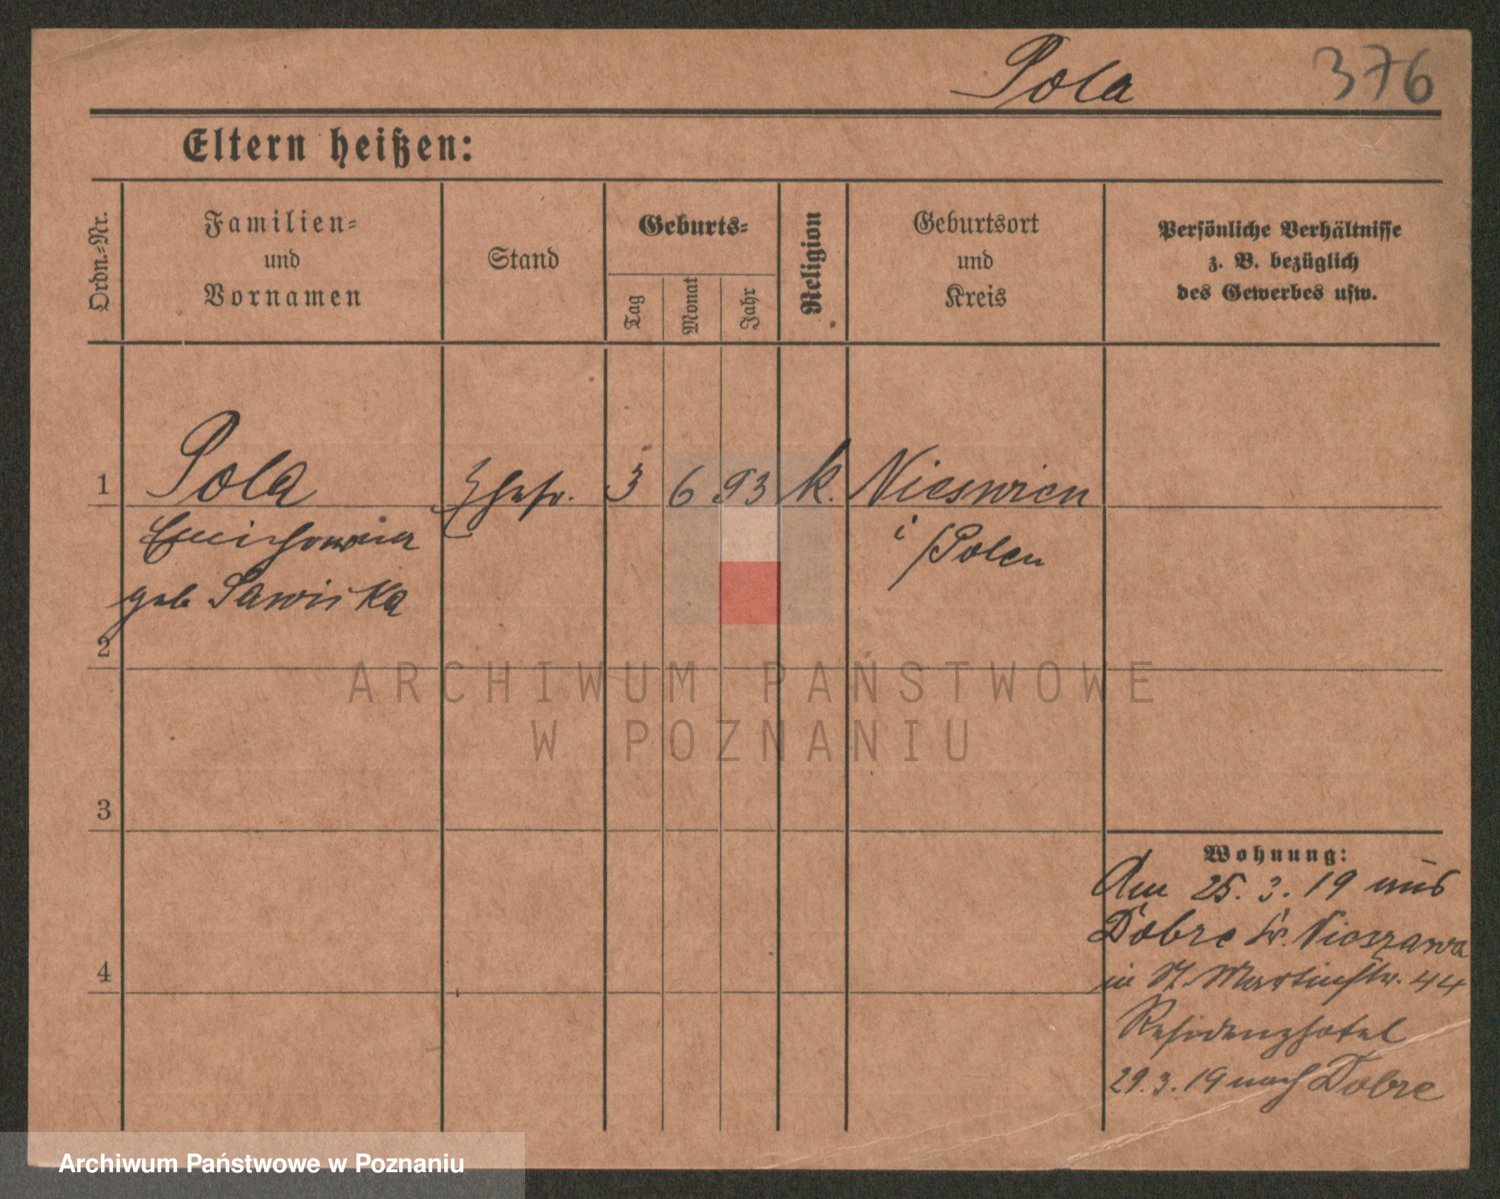 Pola 376
Eltern heißen:
Ordn.-Nr.
Familien- und Vornamen
Stand
Geburts-
Tag
Monat
Jahr
Religion
Geburtsort und Kreis
Persönliche Verhältnisse
z. B. bezüglich
des Gewerbes usw.
1 Pola Ehefr. 3 6 93 k. Nieswien
i/Polen
geb Sawiska
2
3
4
Wohnung:
Am 25.3.19 aus
Dobre Kr. Nieszawa
in St. Martinstr. 44
Residenzhotel
29.3.19 nach Dobre
ARCHIWUM PAŃSTWOWE
W POZNANIU
Archiwum Państwowe w Poznaniu